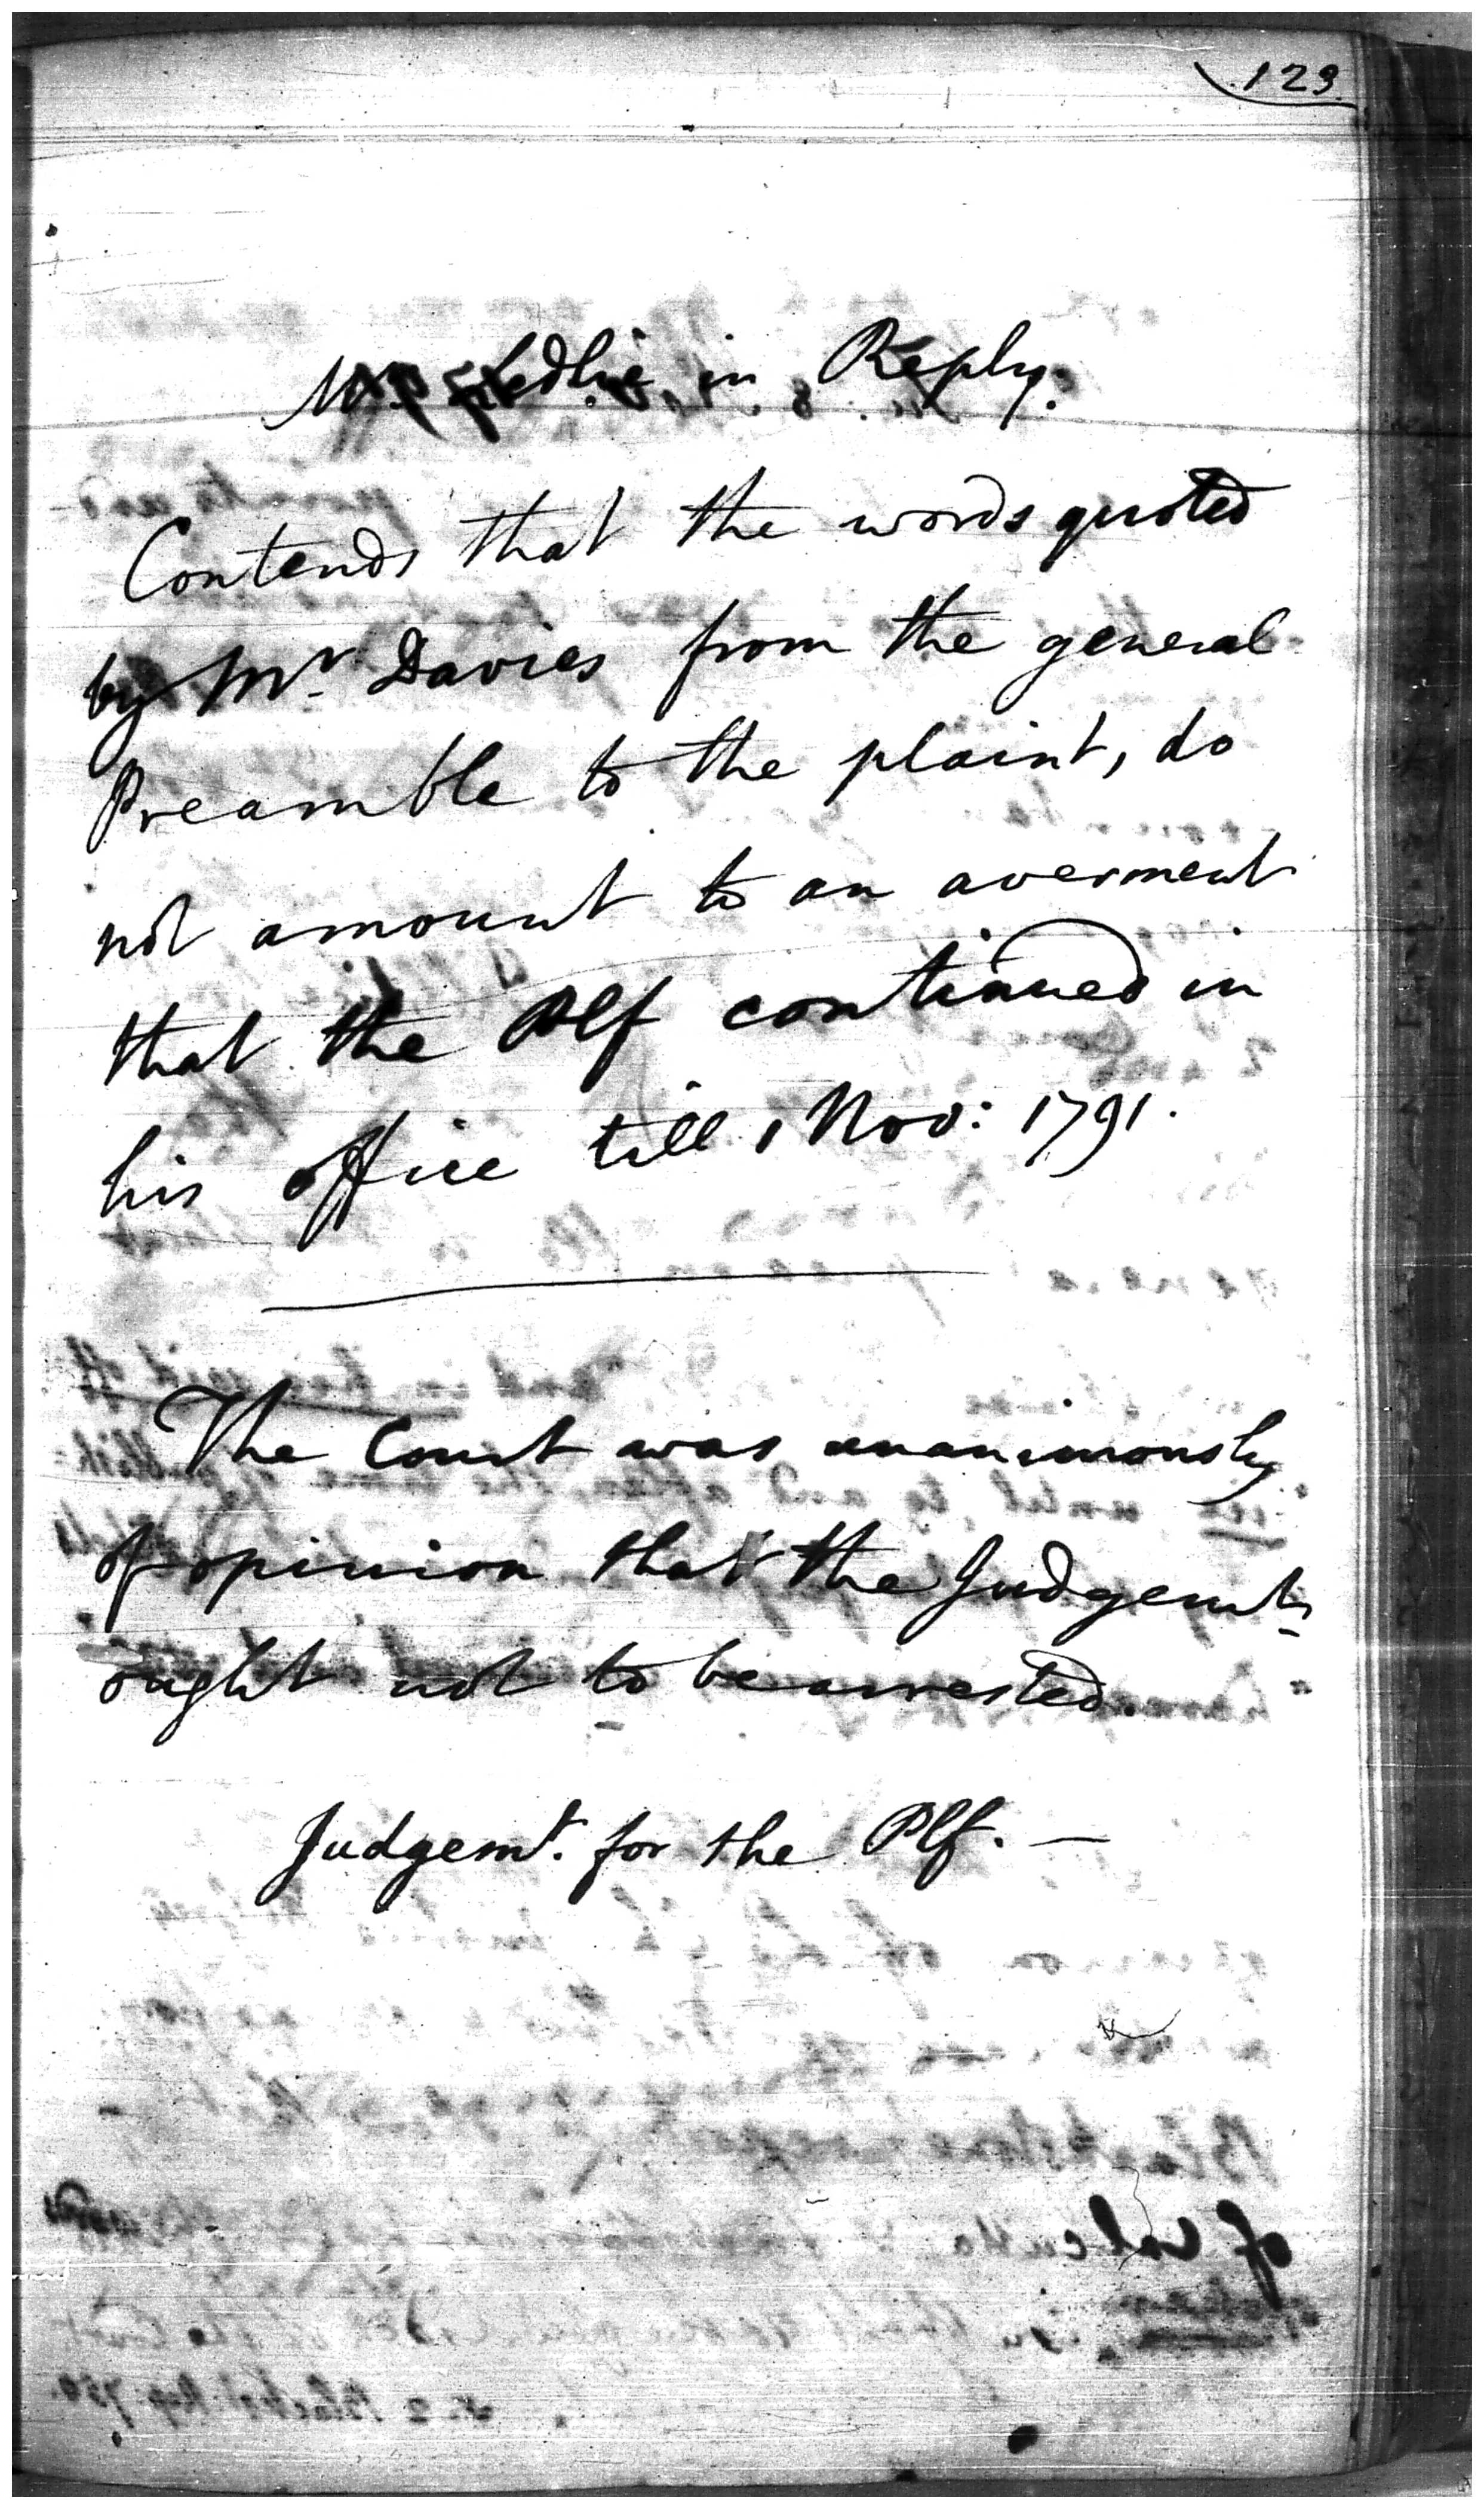 123
Mr Ledlie in Reply.
Contends that the words quoted
by Mr. Davies from the general
Preamble to the plaint, do
not amount to an averment
that the Plf continued in
his office till 1 Nov: 1791.
The Court was unanimously
of opinion that the Judgemt
ought not to be arrested
Judgemt. for the Plf. —